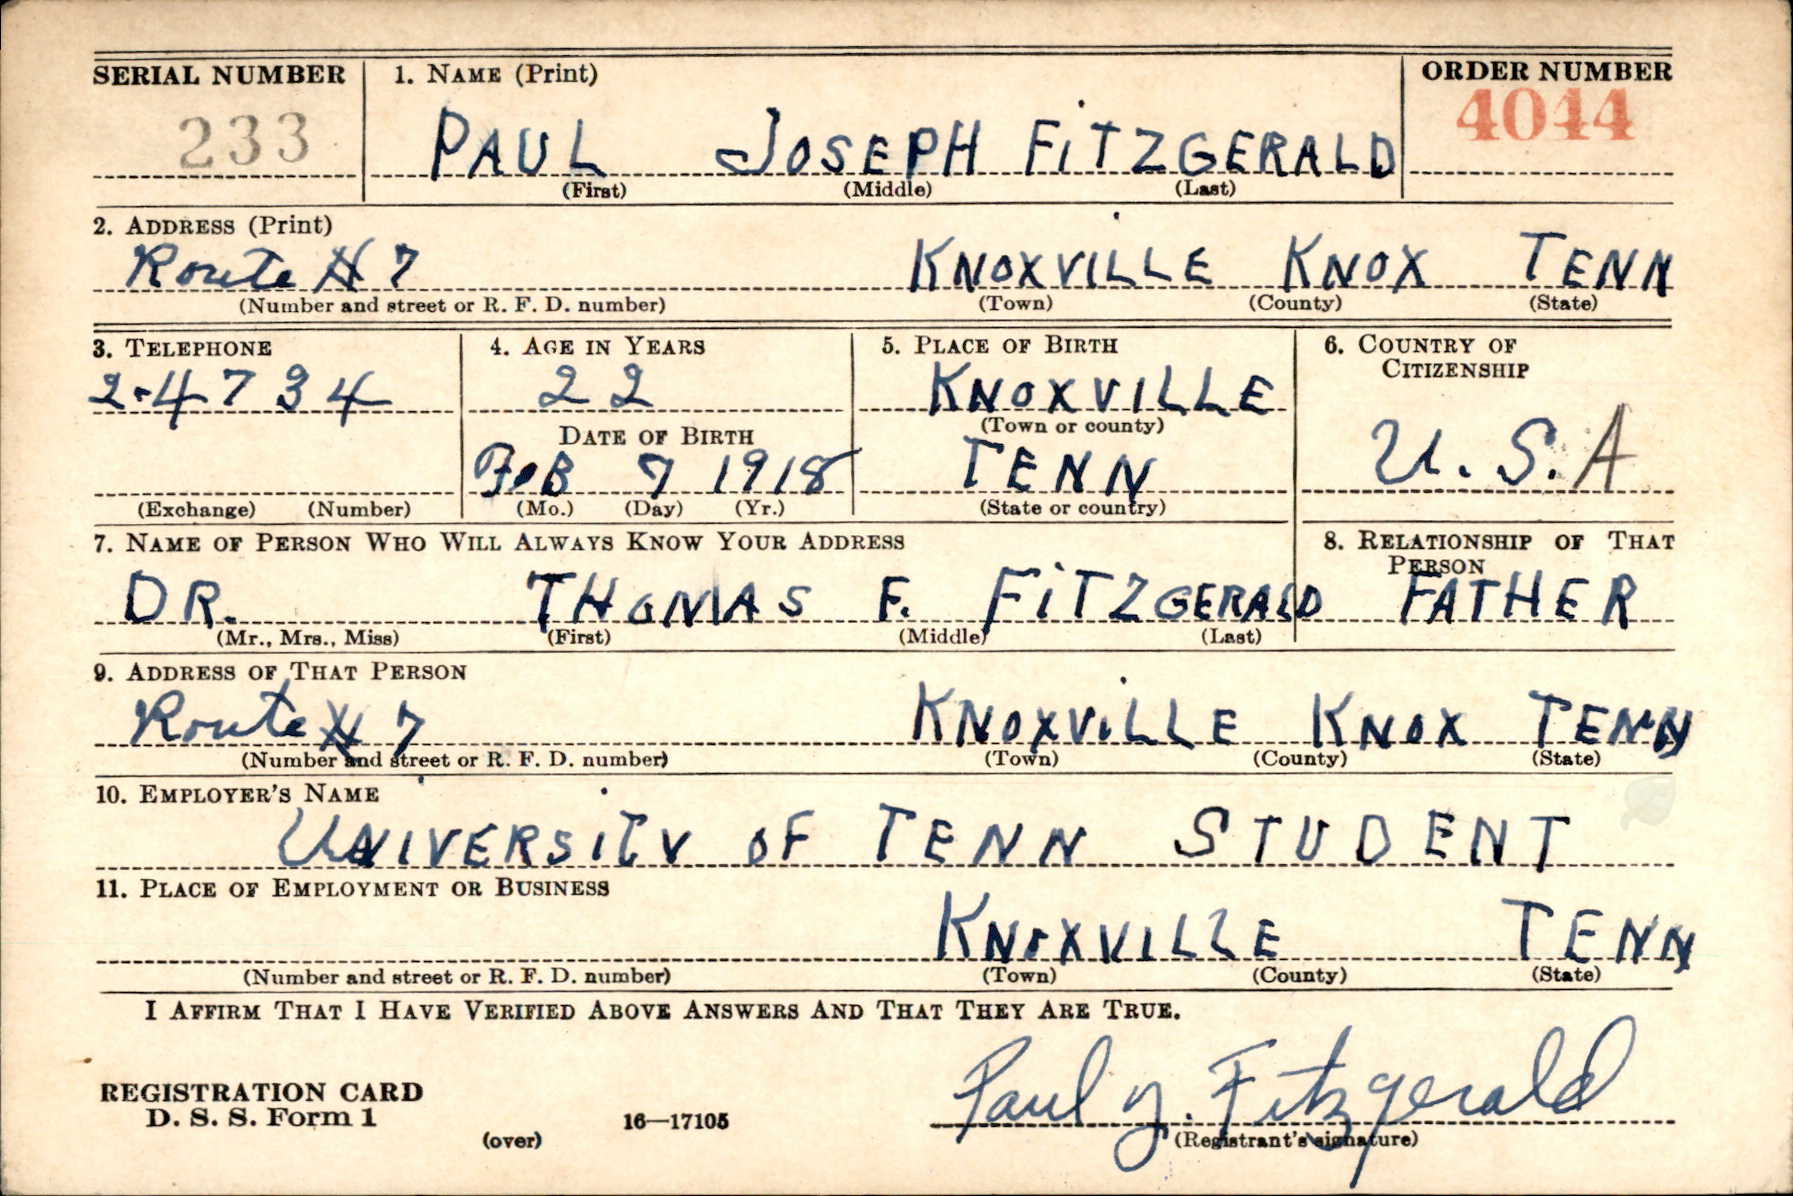 SERIAL NUMBER 1. NAME (Print) ORDER NUMBER
233 PAUL JOSEPH FITZGERALD 4044
(First) (Middle) (Last)
2. ADDRESS (Print)
Route # 7 KNOXVILLE KNOX TENN
(Number and street or R. F. D. number) (Town) (County) (State)
3. TELEPHONE 4. AGE IN YEARS 5. PLACE OF BIRTH 6. COUNTRY OF CITIZENSHIP
2-4734 22 KNOXVILLE
(Town or county)
DATE OF BIRTH
FEB 7 1918 TENN U.S.A
(Exchange) (Number) (Mo.) (Day) (Yr.) (State or country)
7. NAME OF PERSON WHO WILL ALWAYS KNOW YOUR ADDRESS 8. RELATIONSHIP OF THAT PERSON
DR. THOMAS F. FITZGERALD FATHER
(Mr., Mrs., Miss) (First) (Middle) (Last)
9. ADDRESS OF THAT PERSON
Route # 7 KNOXVILLE KNOX TENN
(Number and street or R. F. D. number) (Town) (County) (State)
10. EMPLOYER'S NAME
UNIVERSITY OF TENN STUDENT
11. PLACE OF EMPLOYMENT OR BUSINESS
KNOXVILLE TENN
(Number and street or R. F. D. number) (Town) (County) (State)
I AFFIRM THAT I HAVE VERIFIED ABOVE ANSWERS AND THAT THEY ARE TRUE.
Paul J. Fitzgerald
REGISTRATION CARD
D. S. S. Form 1
(over) 16—17105 (Registrant's signature)